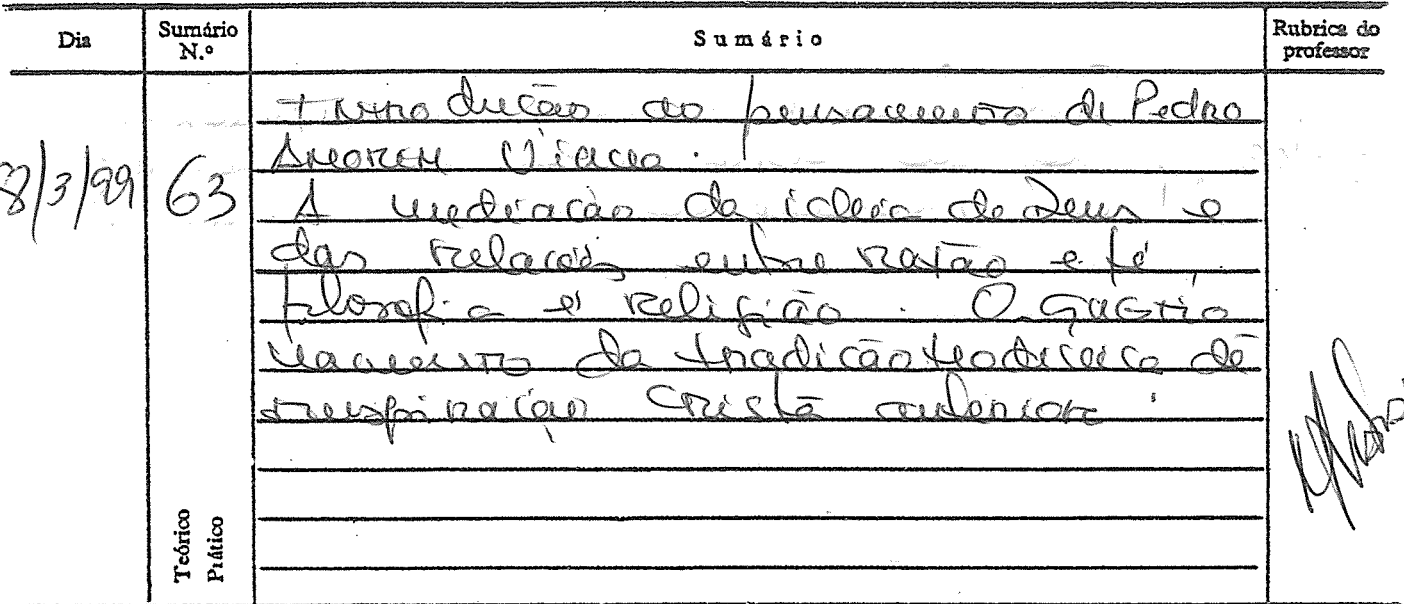 Dia Sumário N.º Sumário Rubrica do professor
Introdução ao pensamento de Pedro
Amorim Viana.
8/3/99 63 A mediação da ideia de Deus e
das relações entre razão e fé,
filosofia e religião. O questio
namento da tradição teodiceica de
inspiração cristã anterior.
Teórico
Prático